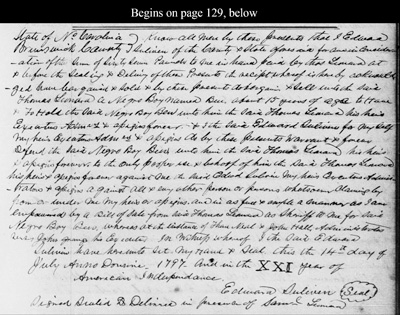 Begins on page 129, below
State of No Carolina } Know all Men by these presents that I Edward
Brunswick County } Sulivan of the County & State aforesaid for & in Consider
ation of the Sum of Sixty seven Pounds to me in hand paid by Thos Leonard at
& before the Sealing & Delivery of these Presents the receipt whereof is hereby acknowled
ged have bargained & sold & by these presents do bargain & sell unto the said
Thomas Leonard a Negro Boy Named Ben, about 15 years of age to Have
& To Hold the said Negro Boy Ben unto him the said Thomas Leonard his heirs
Executors Adm & assigns forever & I the said Edward Sulivan for my self
my heirs Executors & assigns do by these presents Warrant & forever
Defend the said Negro Boy Ben unto him the said Thomas Leonard his heirs
& assigns forever to the Only proper use & behoof of him the said Thomas Leonard
his heirs & assigns forever against me the said Edwd Sulivan My heirs Executors Adminis
trators & assigns & against all & any other person or persons whatsoever Claiming by
from or under me My heirs or assigns and in as free & ample a manner as I am
empowered by a Bill of Sale from said Thomas Leonard as Sheriff to me for said
Negro Boy Ben, whereas at the instance of Thos Neal & John Hall Administrators
John his Executor In Witness whereof I the said Edward
Sulivan have hereunto set My Hand & Seal this the 14th day of
July Anno Domine, 1797. And in the XXI year of
American Independance
Edward Sulivan (Seal)
Signed Sealed & Delivered in presence of Saml Leonard